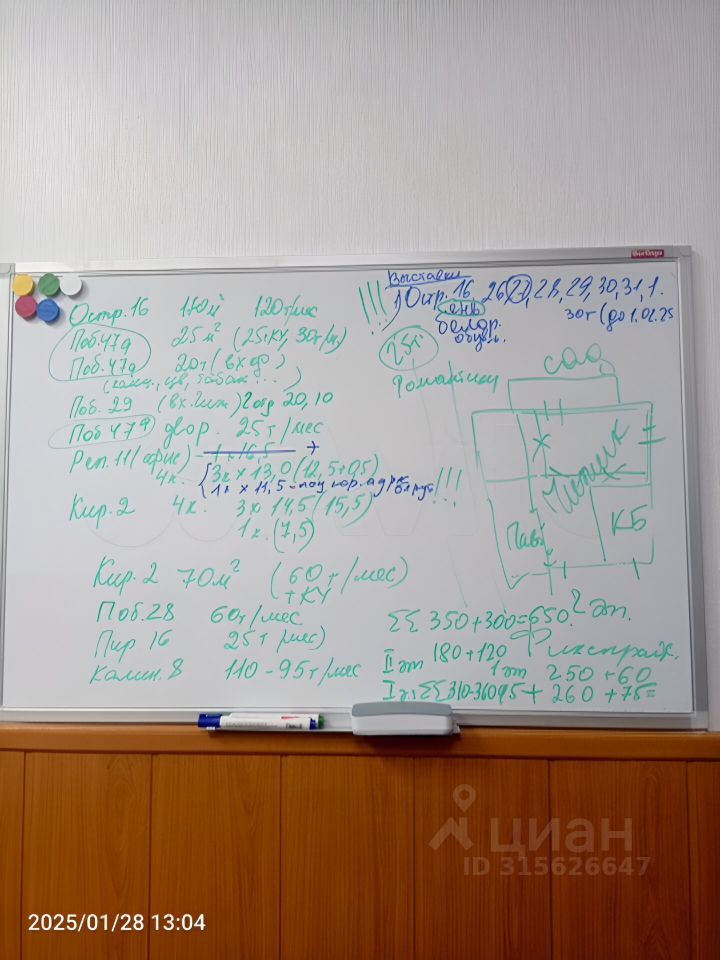 Остр.16 110м² 120т/мес
Поб.47а 25м² (25+КУ, 30т/м)
Поб.47а 20т (вх.ф)
(комн., цв, табак...)
Поб. 29 (вх. ) 2 отд 20, 10
Поб 47а двор. 25т/мес
Реп. 11 (офис) 1к 16,5 +
4к. 3к х 13,0 (12,5+0,5)
1к х 11,5
Кир. 2 4к. 3х 14,5 (15,5)
1к. (7,5)
Кир. 2 70м² (60т/мес)
+КУ
Поб.28 60т/мес
Пир 16 25т/мес)
Калин. 8 110-95т/мес
Выставки
!!! 1) Остр. 16 26, 27, 28, 29, 30, 31, 1.
30т (до 1.02.25
белор.
25т.
Романтики
сад
КБ
!!!
ΣΣ 350+300=650 2 эт.
II эт 180+120
1 эт 250 +60
+ 260 +75=
2025/01/28 13:04
циан
ID 315626647